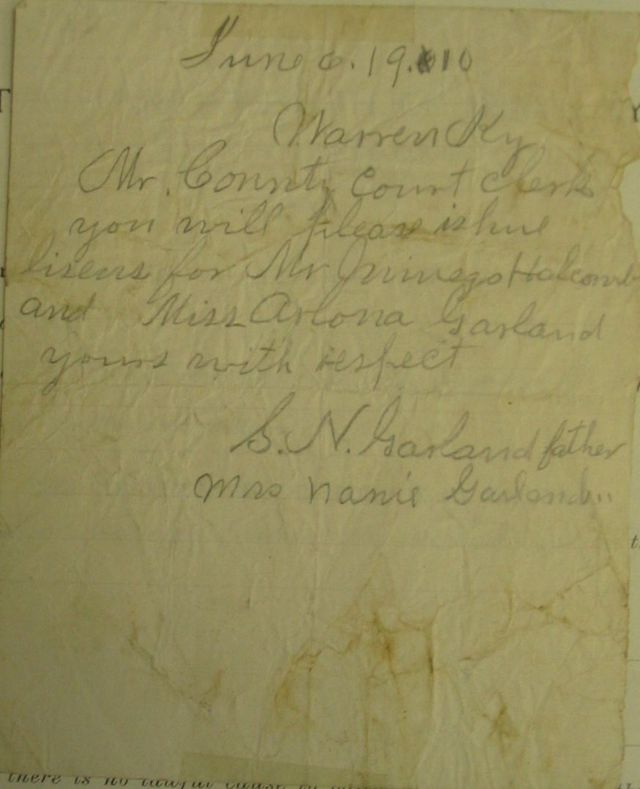 June 6. 19.10
Warren Ky
Mr. County Court Clerk
you will pleas ishue
lisens for Mr Halcomb
and Miss Arlona Garland
yours with respect
S. N. Garland father
Mrs Nanie Garland "
there is no lawful cause